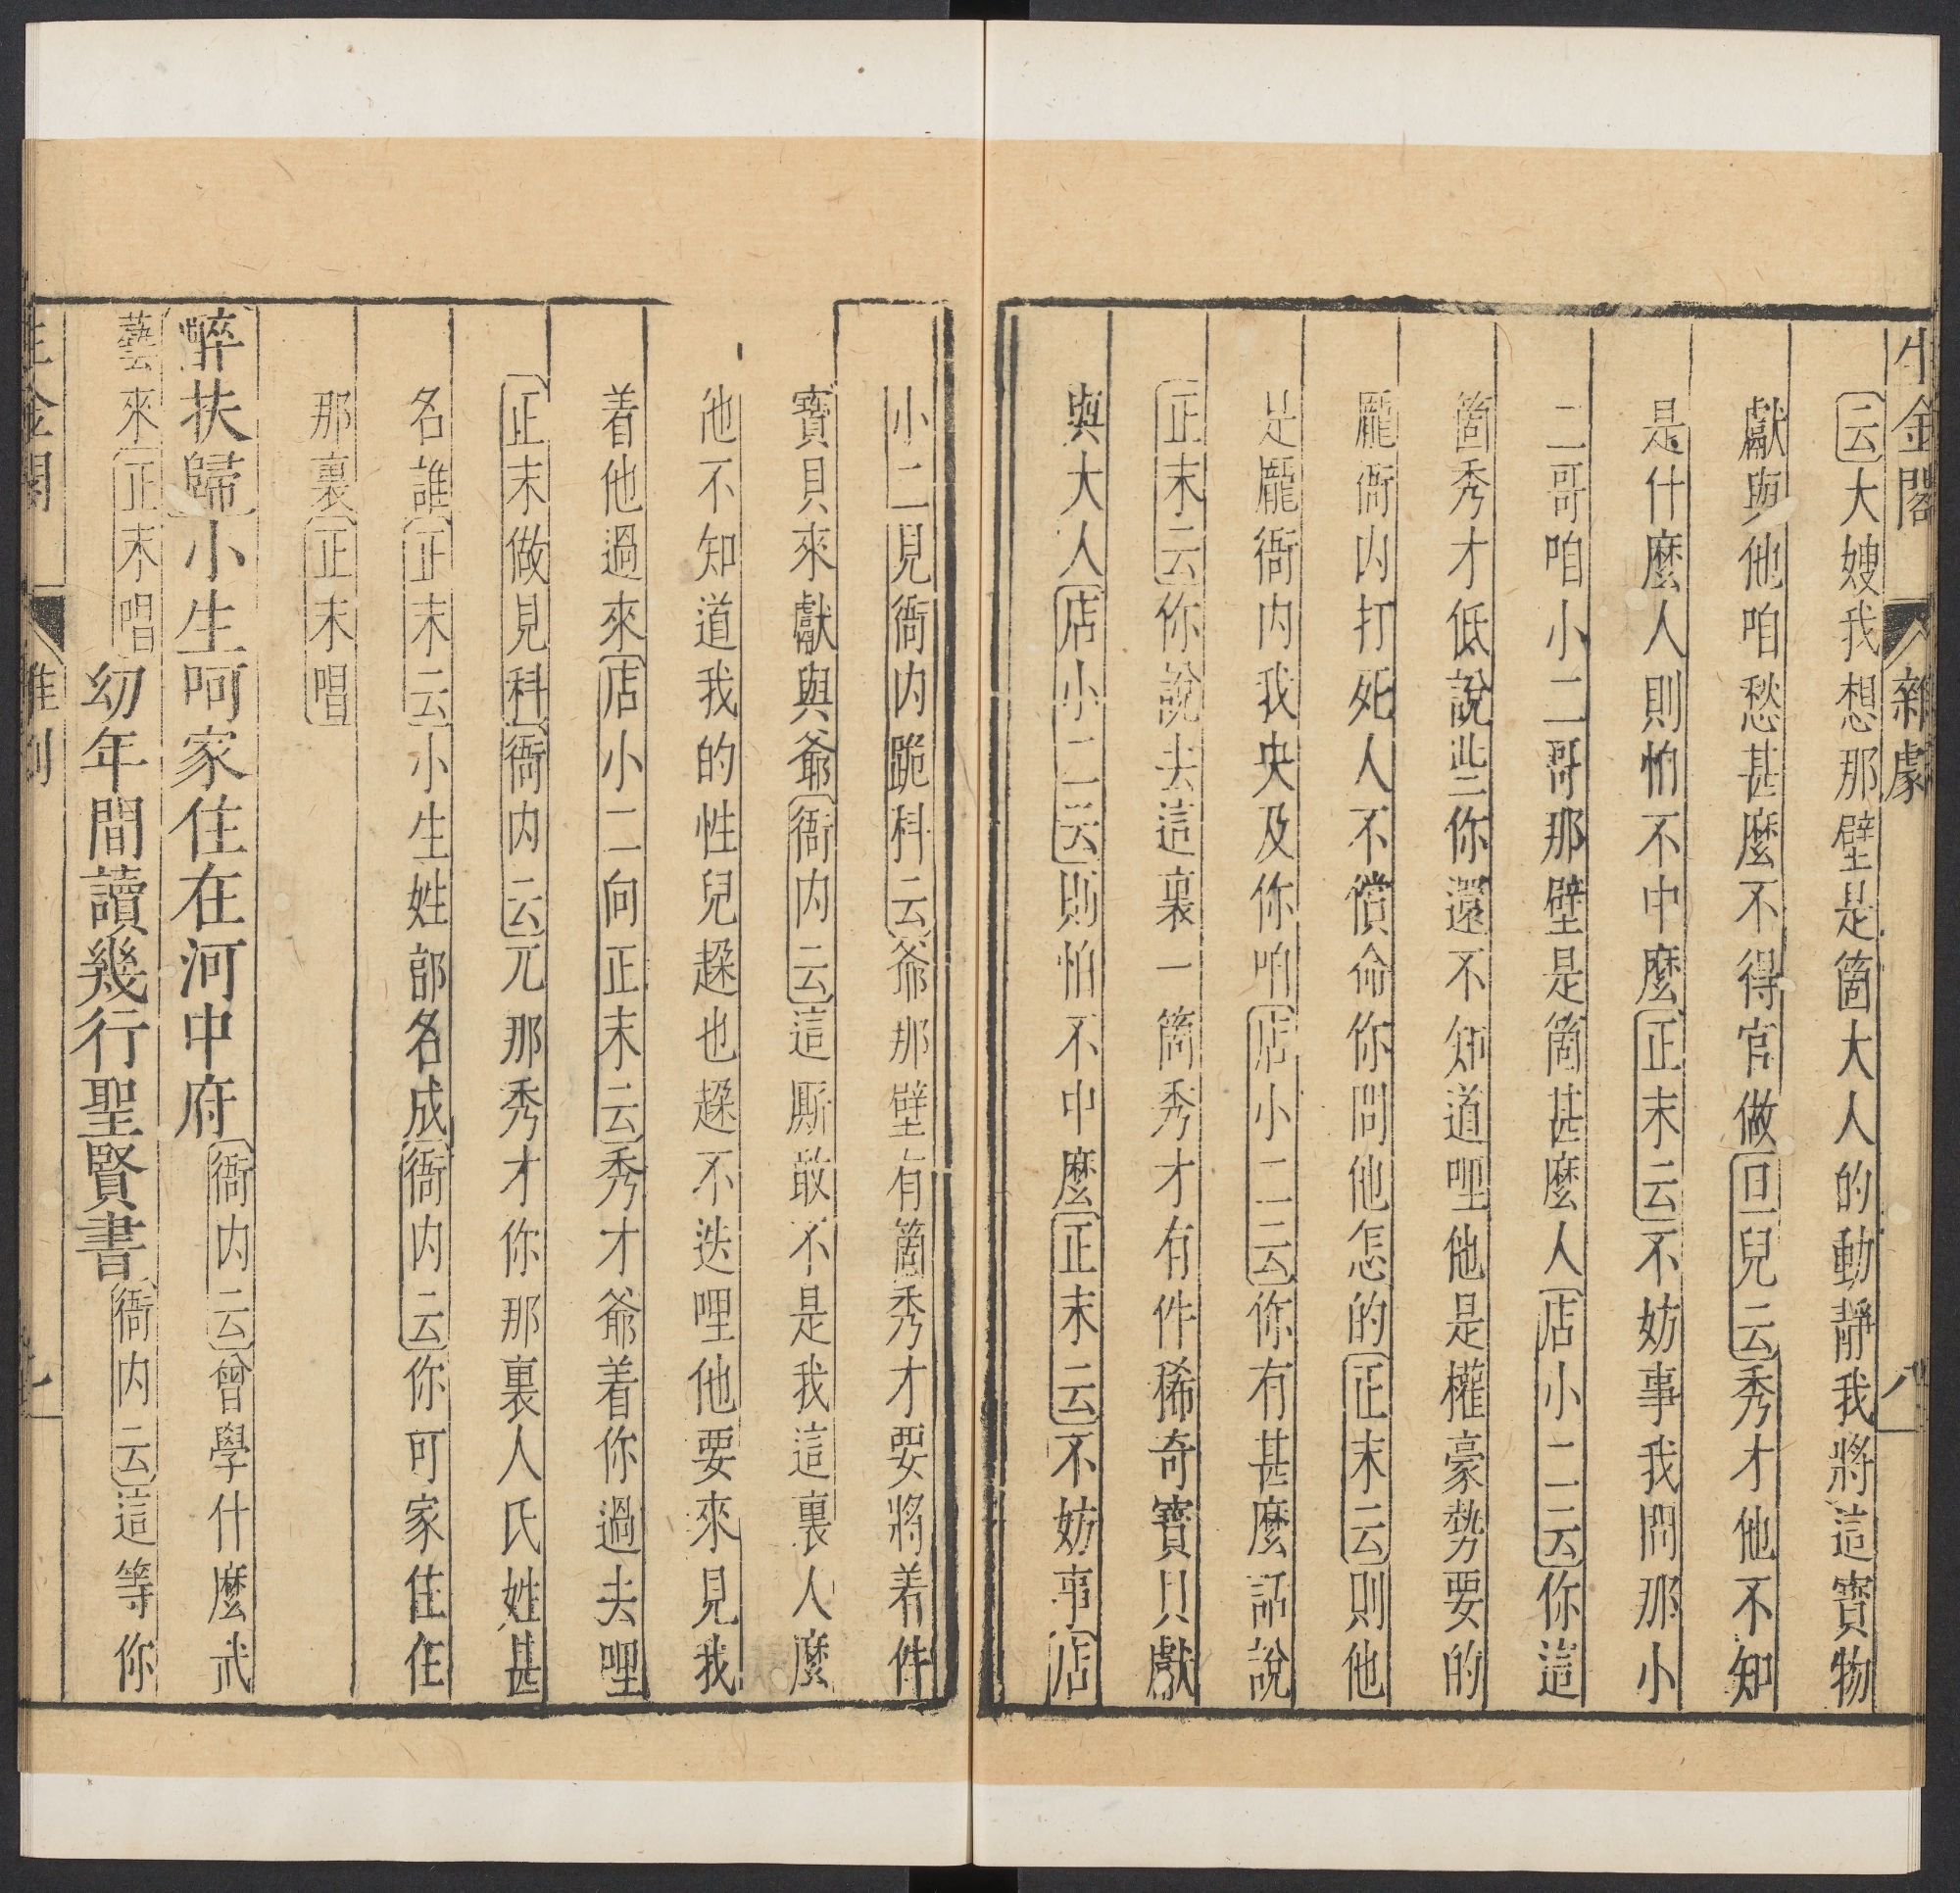 生金閣 雜劇 八
云大嫂我想那壁是箇大人的動靜我將這寶物
獻與他咱愁甚麼不得官做旦兒云秀才他不知
是什麼人則怕不中麼正末云不妨事我問那小
二哥咱小二哥那壁是箇甚麼人店小二云你這
箇秀才低說些你還不知道哩他是權豪勢要的
龐衙內打死人不償命你問他怎的正末云則他
是龐衙內我央及你咱店小二云你有甚麼話說
正末云你說去這裏一箇秀才有件稀奇寶貝獻
與大人店小二云則怕不中麼正末云不妨事店
小二見衙內跪科云爺那壁有箇秀才要將着件
寶貝來獻與爺衙內云這厮敢不是我這裏人麼
他不知道我的性兒趓也趓不迭哩他要來見我
着他過來店小二向正末云秀才爺着你過去哩
正末做見科衙內云兀那秀才你那裏人氏姓甚
名誰正末云小生姓郃名成衙內云你可家住住
那裏正末唱
醉扶歸小生呵家住在河中府衙內云曾學什麼武
藝來正末唱幼年間讀幾行聖賢書衙內云這等你